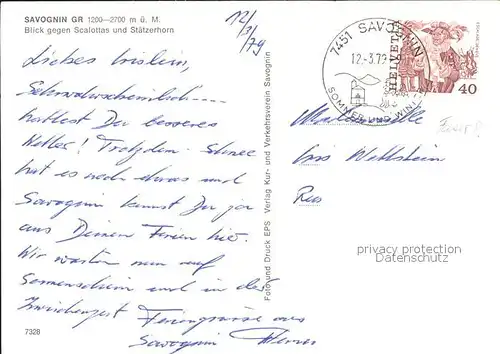 SAVOGNIN GR 1200—2700 m ü. M.
Blick gegen Scalottas und Stätzerhorn
12/
3/79
7451 SAVOGNIN
12.-3.79-9
SOMMER UND WIN
HELVETIA
40
Liebes Irislein,
hattest Du besseres
Wetter! Trotzdem. Schnee
hat es noch etwas und
Savognin kennst Du ja
aus Deinen Ferien hier.
Wir warten nun auf
Sonnenschein und in der
Zwischenzeit Feriengrüsse aus
Savognin
Mademoiselle
Iris Wettstein
Foto und Druck EPS Verlag Kur- und Verkehrsverein Savognin
privacy protection
Datenschutz
7328